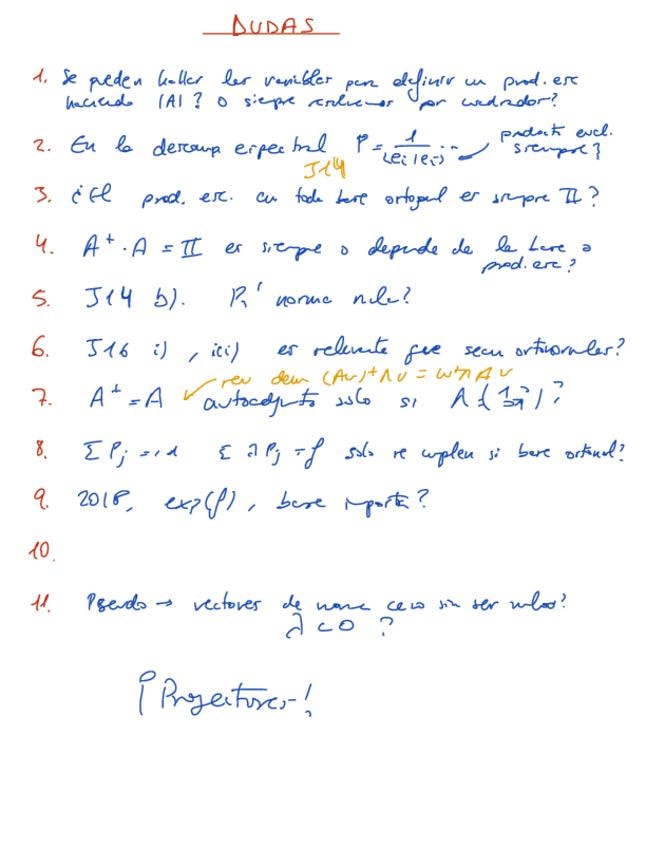 DUDAS
1. Se pueden hallar las variables para definir un prod. esc
haciendo |A| ? o siempre por cuadrados?
2. En la descomp espectral P = 1 / <ei|ei> producto escl.
siempre?
J14
3. ¿El prod. esc. en toda base ortogonal es siempre II ?
4. A⁺ · A = II es siempre o depende de la base o
prod. esc?
5. J14 b). P₁' norma nula?
6. J16 i) , iii) es relevante que sean ortonormales?
rev dem (Av)⁺ Λ v = w⁺ Λ v
7. A⁺ = A autoadjunto solo si A { } ?
8. Σ Pj = id Σ λ Pj = f solo se cumplen si base ortonal?
9. 2018, exp(f), base importa?
10.
11. Pseudo → vectores de norma cero sin ser nulos?
λ < 0 ?
¡ Proyectores !